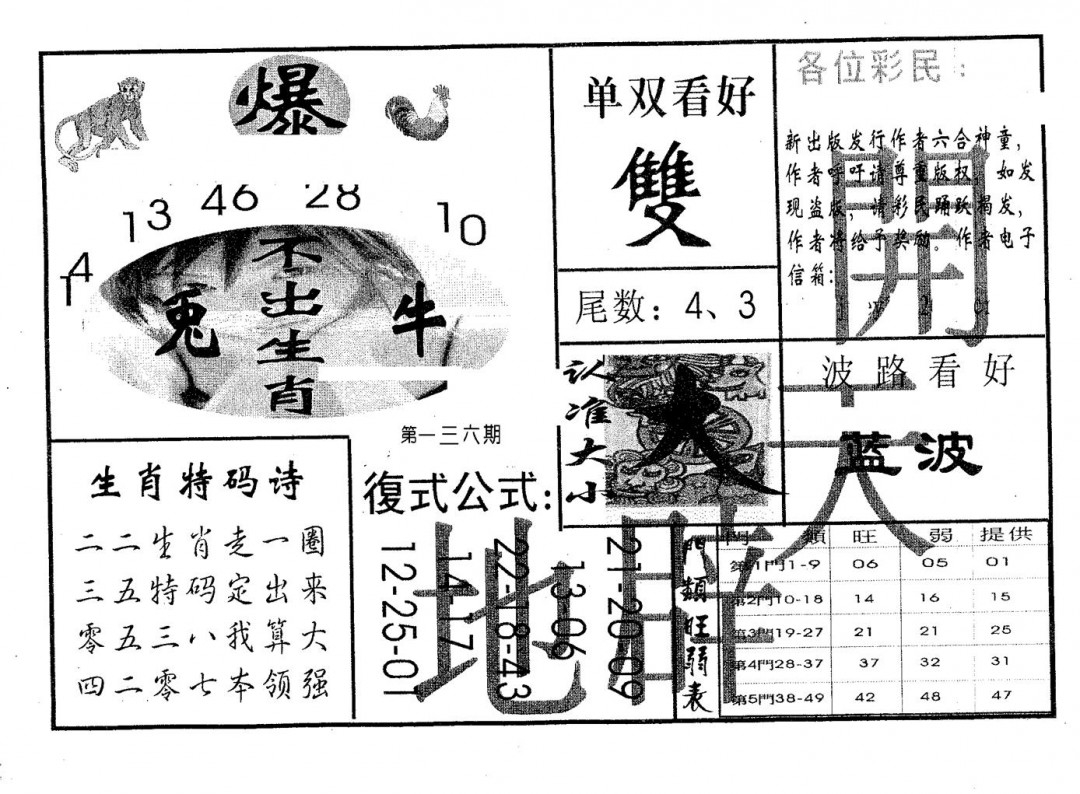 爆
13 46 28 10
14
不出生肖
兎 牛
第一三六期
单双看好
雙
尾数：4、3
各位彩民：
新出版发行作者六合神童，
作者呼吁请尊重版权，如发
现盗版，请彩民踊跃揭发，
作者将给予奖励。作者电子
信箱：
開
认准大小
大
波路看好
蓝波
天
生肖特码诗
二二生肖走一圈
三五特码定出来
零五三八我算大
四二零七本领强
復式公式：
12-25-01
14-17
22-18-43
13-06
21-20-09
地
門類旺弱表
門類 旺 弱 提供
第1門1-9 06 05 01
第2門10-18 14 16 15
第3門19-27 21 21 25
第4門28-37 37 32 31
第5門38-49 42 48 47